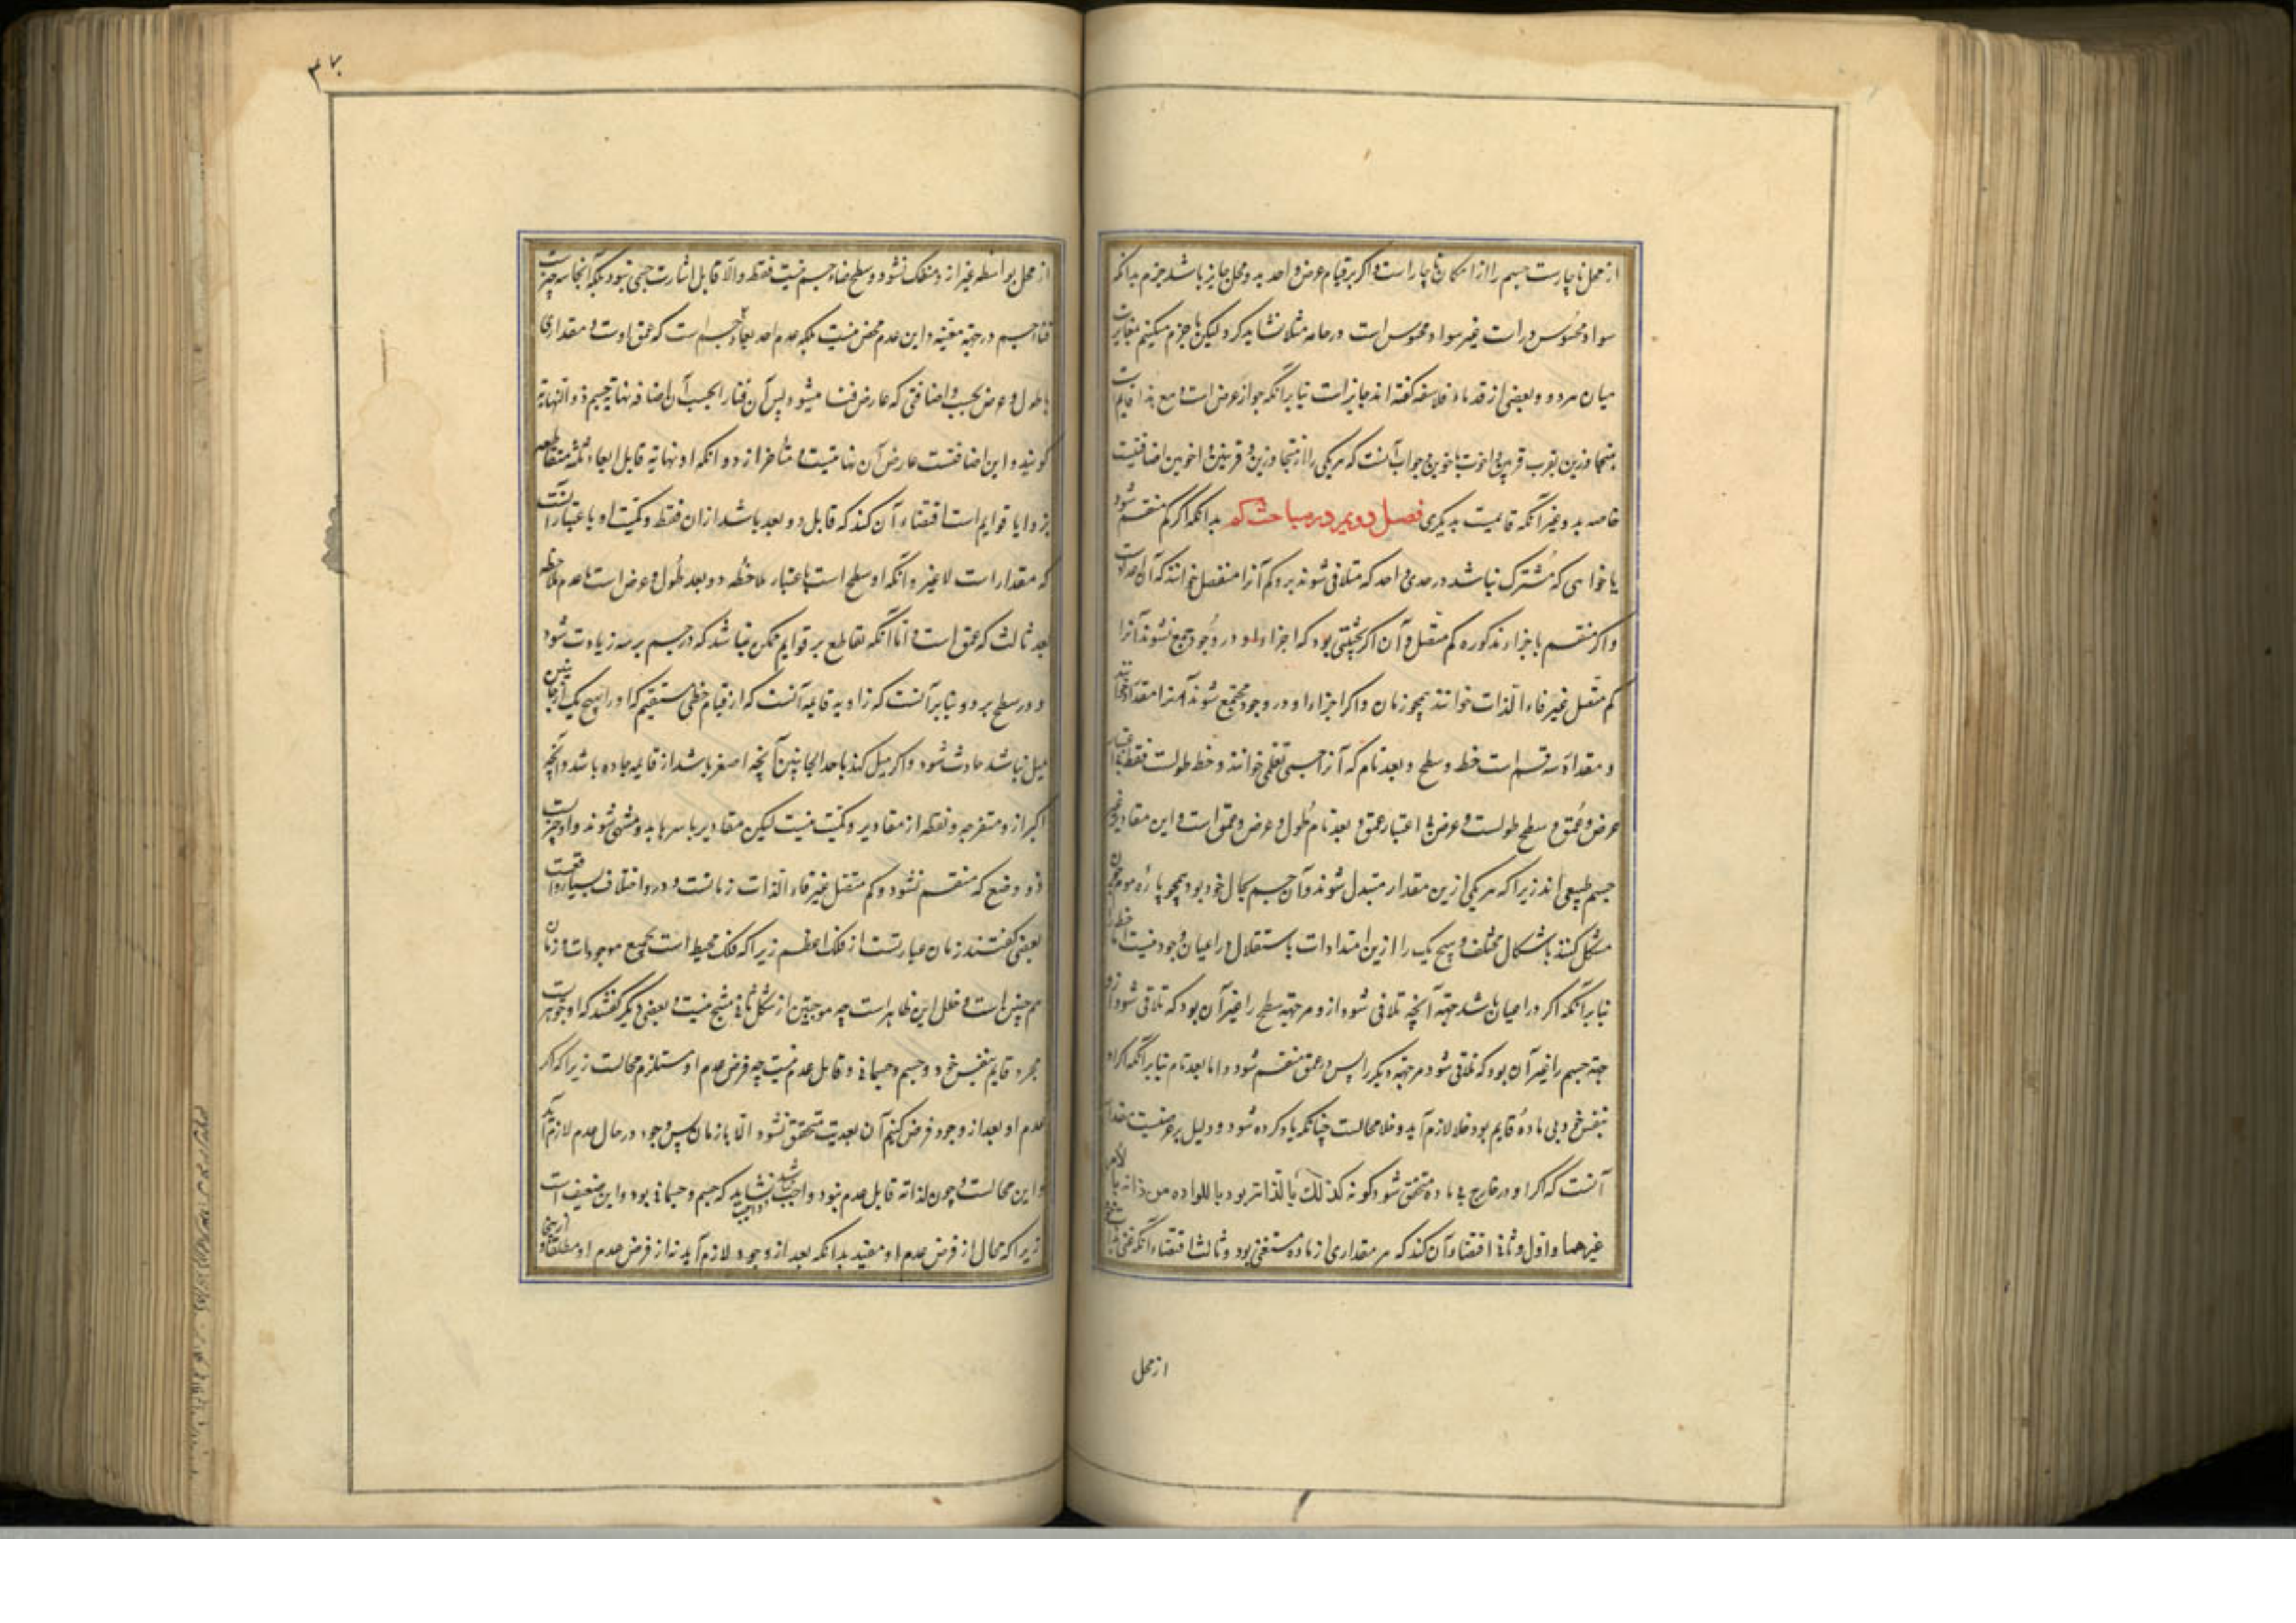 از محل ناچارست جسم را از امکان ناچار است و اکر بر قیام عرض واحد به دو محل جایز باشد جزم بدانکه
سواد محسوس در است غیر سواد محسوس است در جامه مثلا نشاید کرد و لیکن ما جزم میکنیم بمغایرت
میان هر دو و بعضی از قدماء فلاسفه کفته اند جایز است بنا برآنکه جواز عرض است مع هذا قایم است
بمتجاورین بقرب قریبین و اخوت باخوین و جواب آنست که هر یکی را از متجاورین و قریبین و اخوین اضافتیست
خاصه بدو غیر آنکه قایمست بدیکری فصل دویم در مباحث کم بدانکه اکر کم منقسم شود
باجزایی که مشترک نباشد در حدی واحد که متلاقی شوند برو کم آنرا منفصل خوانند که آن عددست
و اکر منقسم باجزاء مذکوره کم متصل و آن اکر بحیثیتی بود که اجزاء او در وجود جمع نشوند آنرا
کم متصل غیر قاء الذات خوانند همچو زمان و اکر اجزاء او در وجود مجتمع شوند آنرا مقدار خوانند
و مقدار سه قسم است خط و سطح و بعد تام که آنرا جسم تعلیمی خوانند و خط طولست فقط بی اعتبار
عرض و عمق و سطح طولست و عرض بی اعتبار عمق و بعد تام طول و عرض و عمق است و این مقادیر غیر
جسم طبیعی اند زیرا که هر یکی ازین مقدار متبدل شوند و آن جسم بحال خود بود همچو پاره موم چون
مشکل کنند باشکال مختلف و هیچ یک را ازین امتدادات باستقلال در اعیان وجود نیست اما خط
بنا برآنکه اکر در اعیان باشد جهته آنچه تلاقی شود ازو مر جهته سطح را غیر آن بود که تلاقی شود ازو
جهته جسم را غیر آن بود که تلاقی شود مر جهته دیکر را پس در عمق منقسم شود و اما بعد تام بنا برآنکه اکر او
بنفس خود بی ماده قایم بود خلا لازم آید و خلا محالست چنانکه یاد کرده شود و دلیل بر عرضیت مقدار
آنست که اکر او در خارج بی ماده متحقق شود کونه کذلک یا لذاته بود یا للوازم من ذاته یا لامر
غیرهما و اول و ثانی اقتضاء آن کند که هر مقداری از ماده مستغنی بود و ثالث اقتضاء آنکه غنی شود
از محل
۳۷
از محل بواسطه غیر ازو منفک نشود و سطح فناء جسم نیست فقط و الا قابل اشارت حسی نبود بلکه آنجا سه چیزست
فناء جسم در جهته معینه و این عدم محض نیست بلکه عدم احد ابعاد جسم است که عمق اوست و مقداری
با طول و عرض بحسب و اضافتی که عارض فنا میشود پس آن فنا را بحسب آن اضافه نهایة جسم ذو النهایه
کویند و این اضافتست عارض آن نهایتست و متاخر ازو و آنکه او نهایة قابل ابعاد ثلثه متقاطعه
بر زوایا قوایم است اقتضاء آن کند که قابل دو بعد باشد ازان فقط و کمیت او باعتبار آنست
که مقدار است لا غیر و آنکه او سطح است باعتبار ملاحظه دو بعد طول و عرض است با عدم ملاحظه
بعد ثالث که عمق است و اما آنکه تقاطع بر قوایم ممکن نباشد که در جسم بر سه زیادت شود
و در سطح بر دو بنا برآنست که زاویه قایمه آنست که از قیام خطی مستقیم که او را بهیچ یک از جانبین
میل نباشد حادث شود و اکر میل کند باحد الجانبین آنچه اصغر باشد از قایمه حاده باشد و آنچه
اکبر ازو منفرجه و نقطه از مقادیر و کمیت نیست لیکن مقادیر باسرها بدو منتهی شوند و او چیزیست
ذو وضع که منقسم نشود و کم متصل غیر قاء الذات زمانست و درو اختلاف بسیار واقعست
بعضی کفتند زمان عبارتست از فلک اعظم زیرا که فلک محیط است بجمیع موجودات و زمان
هم چنین است و خلل این ظاهر است چه موجبتین از شکل ثانی منتج نیست و بعضی دیکر کفتند که او جوهریست
مجرد قایم بنفس خود و جسم و جسمانی و قابل عدم نیست چه فرض عدم او مستلزم محالست زیرا که اکر
عدم او بعد از وجود فرض کنیم آن بعدیت متحقق نشود الا بازمان پس وجود در حال عدم لازم آید
و این محالست و چون لذاته قابل عدم نبود واجب باشد و واجب نشاید که جسم و جسمانی بود و این ضعیف است
زیرا که محال از فرض عدم او مقید بدانکه بعد از وجود لازم آید نه از فرض عدم او مطلقا و از اینجا